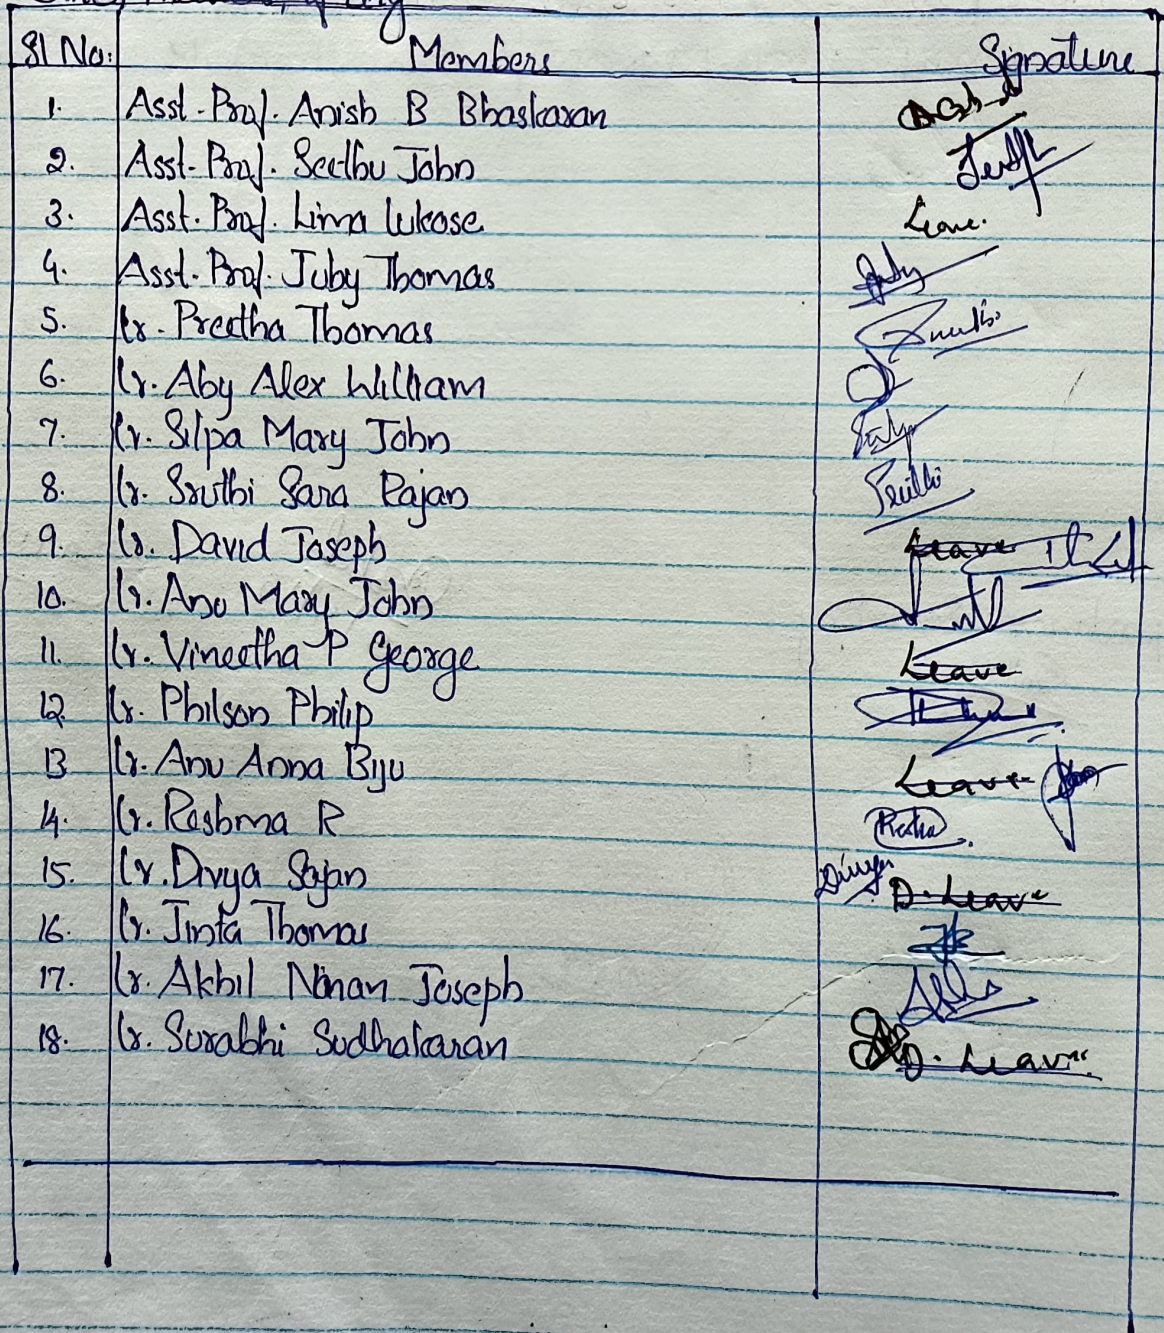 Sl No: Members Signature
1. Asst. Prof. Anish B Bhaskaran
2. Asst. Prof. Seethu John
3. Asst. Prof. Lima Lukose Leave.
4. Asst. Prof. Juby Thomas
5. Lr. Preetha Thomas
6. Lr. Aby Alex William
7. Lr. Silpa Mary John
8. Lr. Sruthi Sara Rajan
9. Lr. David Joseph Leave
10. Lr. Anu Mary John
11. Lr. Vineetha P George Leave
12. Lr. Philson Philip
13 Lr. Anu Anna Biju Leave
14. Lr. Reshma R
15. Lr. Divya Sajan Divya D. Leave
16. Lr. Jinta Thomas
17. Lr. Akhil Ninan Joseph
18. Lr. Surabhi Sudhakaran D. Leave